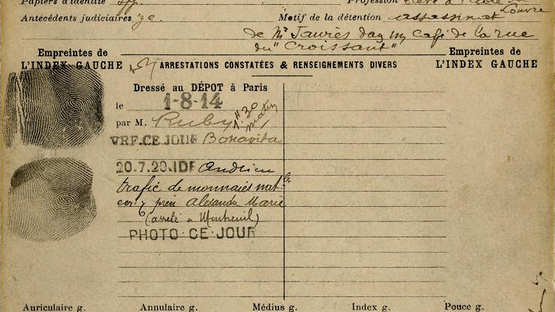 Papiers d'identité
Profession Elève à l'Ecole du Louvre
Antécédents judiciaires
Motif de la détention assassinat
de Mr Jaurès dans un café de la rue
du "Croissant"
Empreintes de
L'INDEX GAUCHE
ARRESTATIONS CONSTATÉES & RENSEIGNEMENTS DIVERS
Empreintes de
L'INDEX GAUCHE
Dressé au DÉPOT à Paris
le 1-8-14
par M. Ruby
VRF.CE JOUR Bonavita
20.7.20.IDF Andrieu
trafic de monnaies
alexandre Marie
(arrêté à Montreuil)
PHOTO-CE-JOUR
Auriculaire g. Annulaire g. Médius g. Index g. Pouce g.